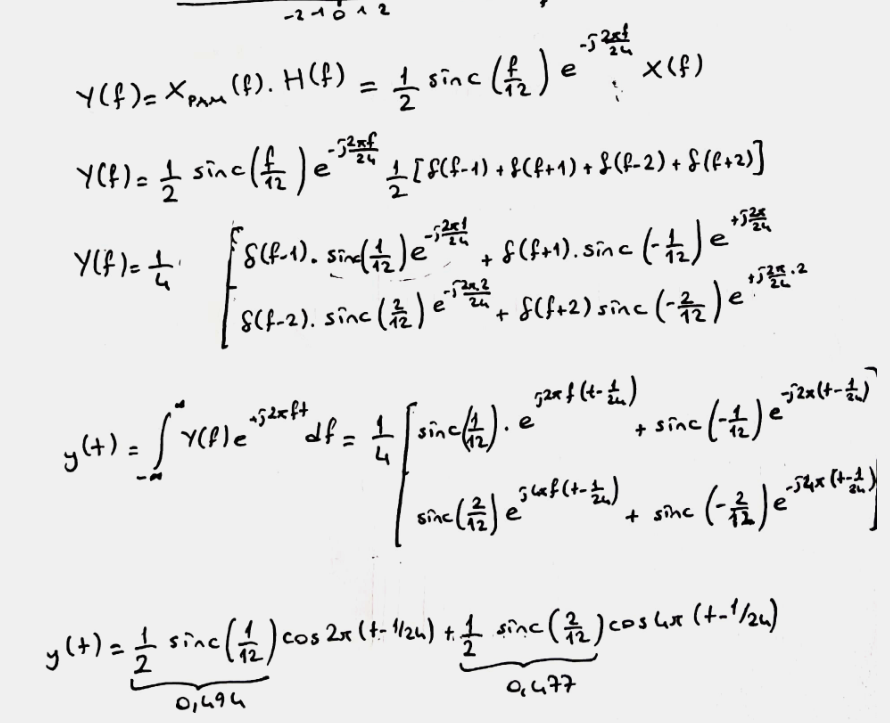 -2 -1 0 1 2
Y(f) = X_PAM(f) . H(f) = 1/2 sinc(f/12) e^(-j2πf/24) X(f)
Y(f) = 1/2 sinc(f/12) e^(-j2πf/24) 1/2 [δ(f-1) + δ(f+1) + δ(f-2) + δ(f+2)]
Y(f) = 1/4 . [δ(f-1) . sinc(1/12) e^(-j2π1/24) + δ(f+1) . sinc(-1/12) e^(+j2π/24)
δ(f-2) . sinc(2/12) e^(-j2π2/24) + δ(f+2) sinc(-2/12) e^(+j2π/24 . 2)
y(t) = ∫_{-∞}^{∞} Y(f) e^(+j2πft) df = 1/4 [sinc(1/12) . e^(j2πf(t-1/24)) + sinc(-1/12) e^(-j2π(t-1/24))
sinc(2/12) e^(j4πf(t-1/24)) + sinc(-2/12) e^(-j4π(t-1/24))]
y(t) = 1/2 sinc(1/12) cos2π(t-1/24) + 1/2 sinc(2/12) cos4π(t-1/24)
0,494 0,477